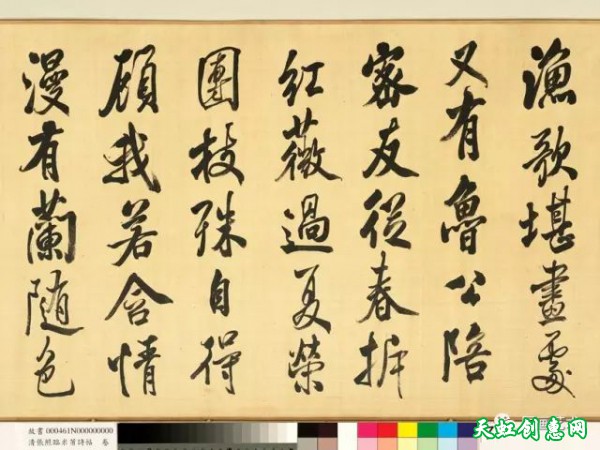 漁歌堪畫處
又有魯公陪
密友從春拆
紅薇過夏榮
團枝殊自得
顧我若含情
漫有蘭隨色
故書 000461N000000000
清張照臨米芾詩帖 卷
天虹创惠网